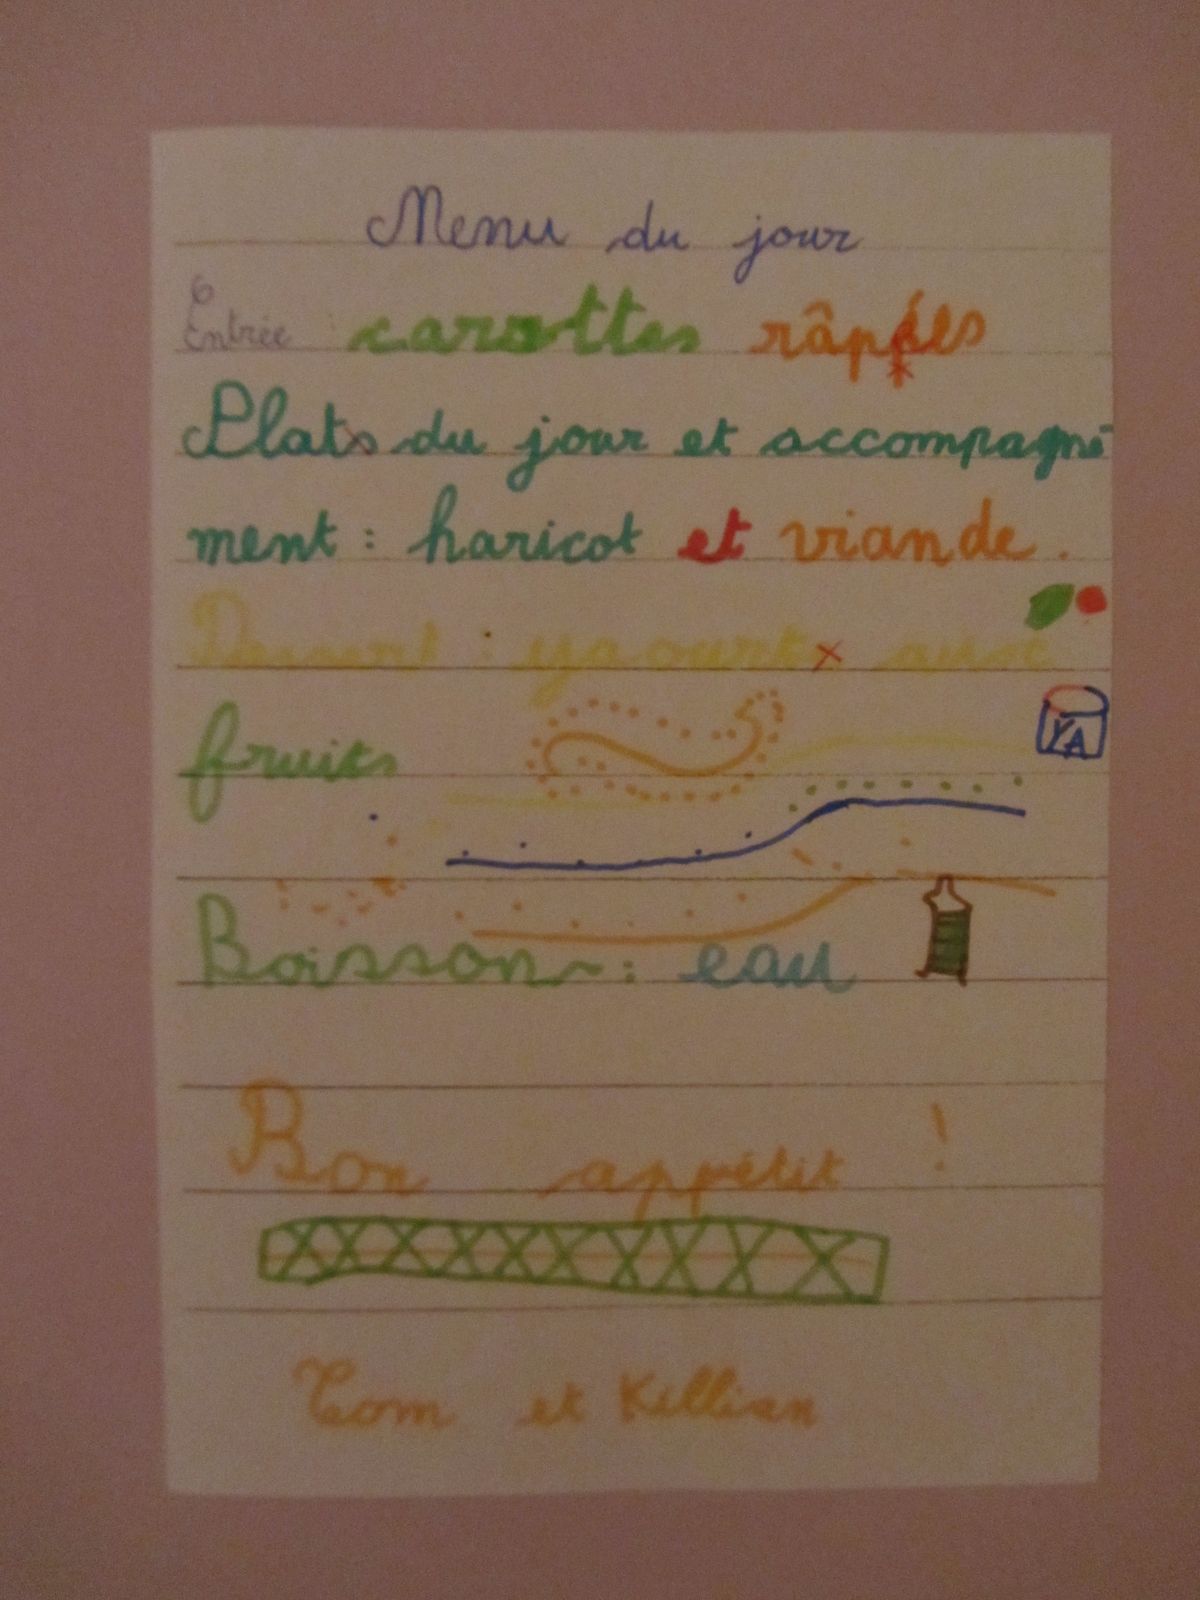 Menu du jour
Entrée carottes râpées
Plats du jour et accompagne
ment : haricot et viande.
Dessert : yaourt aux
fruits
YA
Boisson : eau
Bon appétit !
Tom et Killian